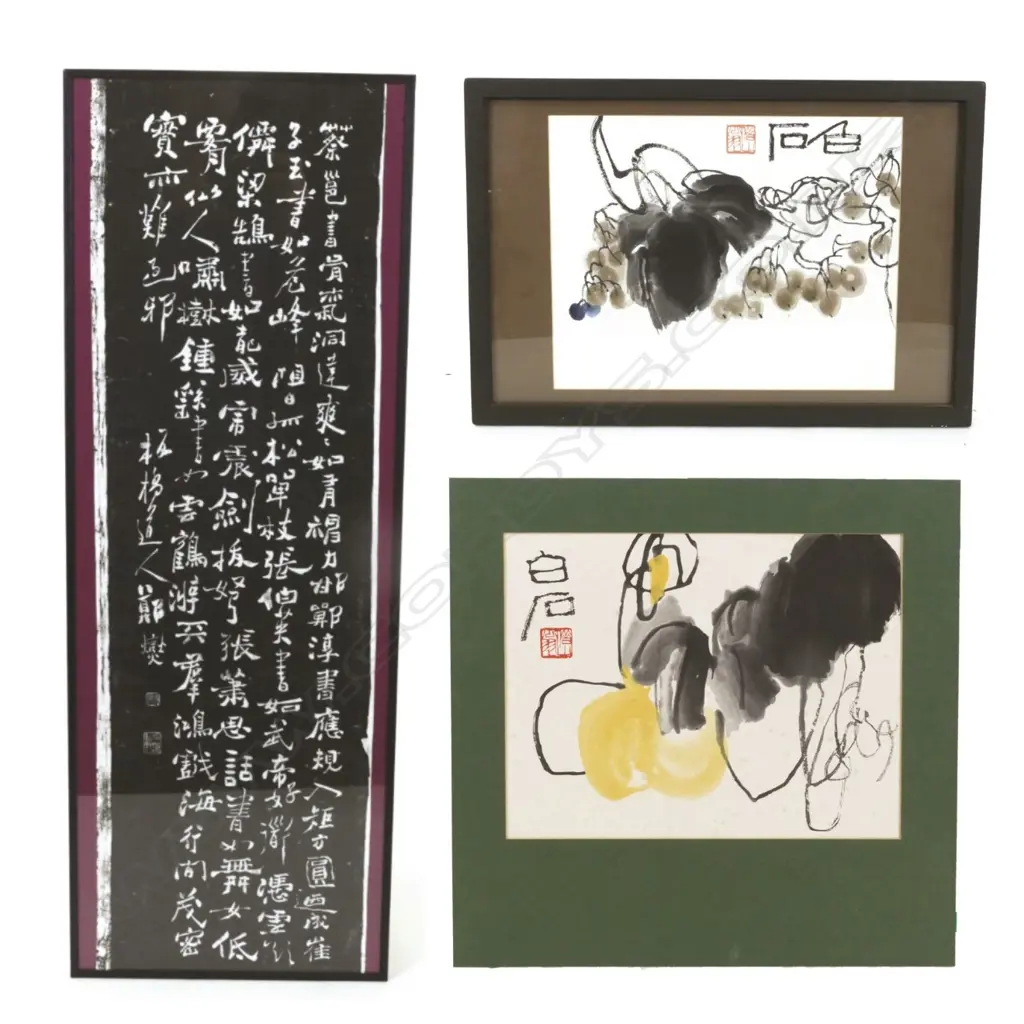 蔡邕書骨氣洞達爽〻如有神力邯鄲淳書應規入矩方圓迺成崔
子玉書如危峰阻日孤松單枝張伯英書如武帝好道憑雲欲
僊梁鵠書如龍威虎震劍拔弩張蕭思話書如舞女低
腰仙人嘯樹鍾繇書如雲鶴游天羣鴻戲海行間茂密
實亦難過邪
板橋道人鄭燮
白石
白石